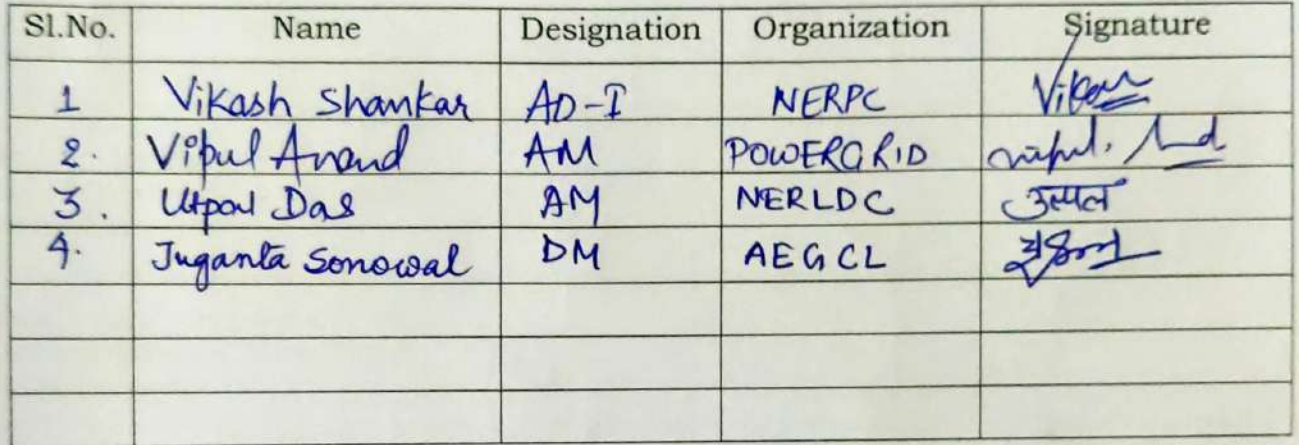 Sl.No. Name Designation Organization Signature
1 Vikash Shankar AD-I NERPC Vikash
2. Vipul Anand AM POWERGRID Vipul. Anand
3. Utpal Das AM NERLDC उत्पल
4. Juganta Sonowal DM AEGCL